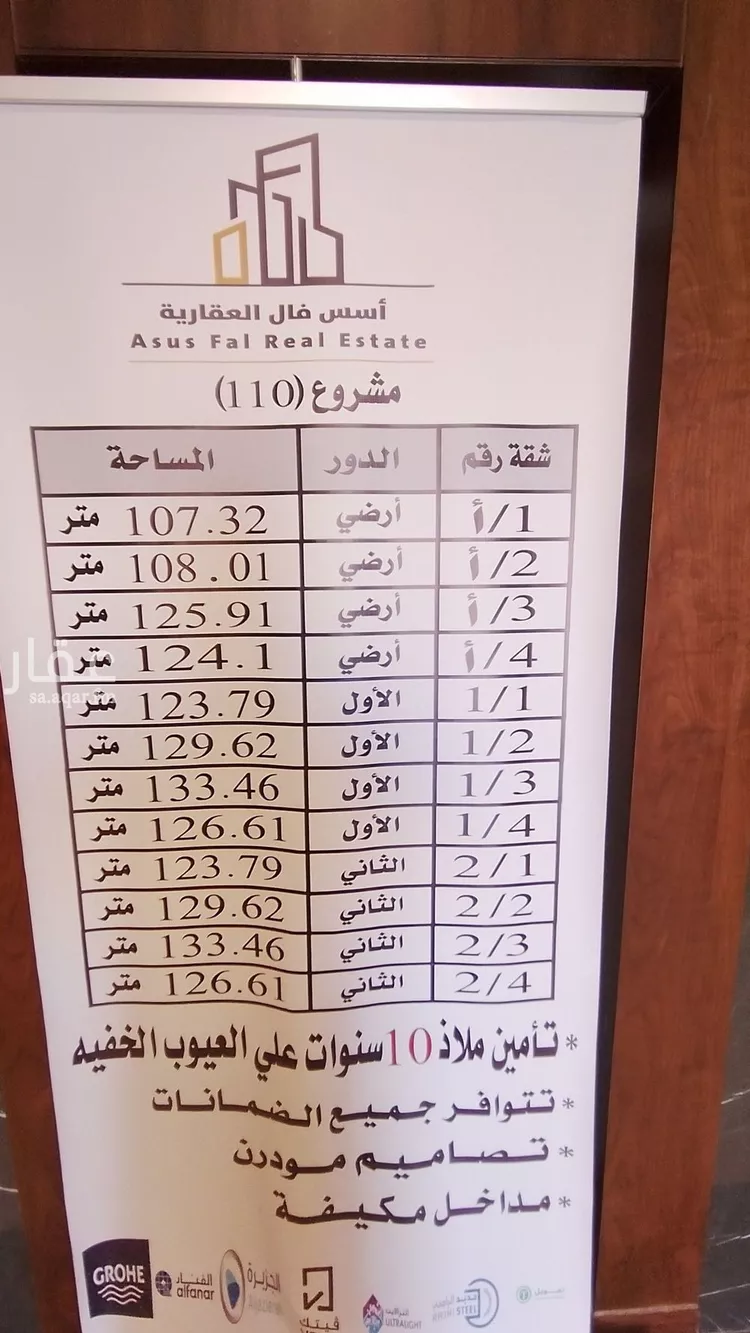 أسس فال العقارية
Asus Fal Real Estate
مشروع (110)
شقة رقم الدور المساحة
أ/1 أرضي 107.32 متر
أ/2 أرضي 108.01 متر
أ/3 أرضي 125.91 متر
أ/4 أرضي 124.1 متر
1/1 الأول 123.79 متر
1/2 الأول 129.62 متر
1/3 الأول 133.46 متر
1/4 الأول 126.61 متر
2/1 الثاني 123.79 متر
2/2 الثاني 129.62 متر
2/3 الثاني 133.46 متر
2/4 الثاني 126.61 متر
* تأمين ملاذ 10 سنوات علي العيوب الخفيه
* تتوافر جميع الضمانات
* تصاميم مودرن
* مداخل مكيفة
GROHE
الفنار
alfanar
الجزيرة
فيتك
ULTRALIGHT
STEEL
عقار
sa.aqar.fm